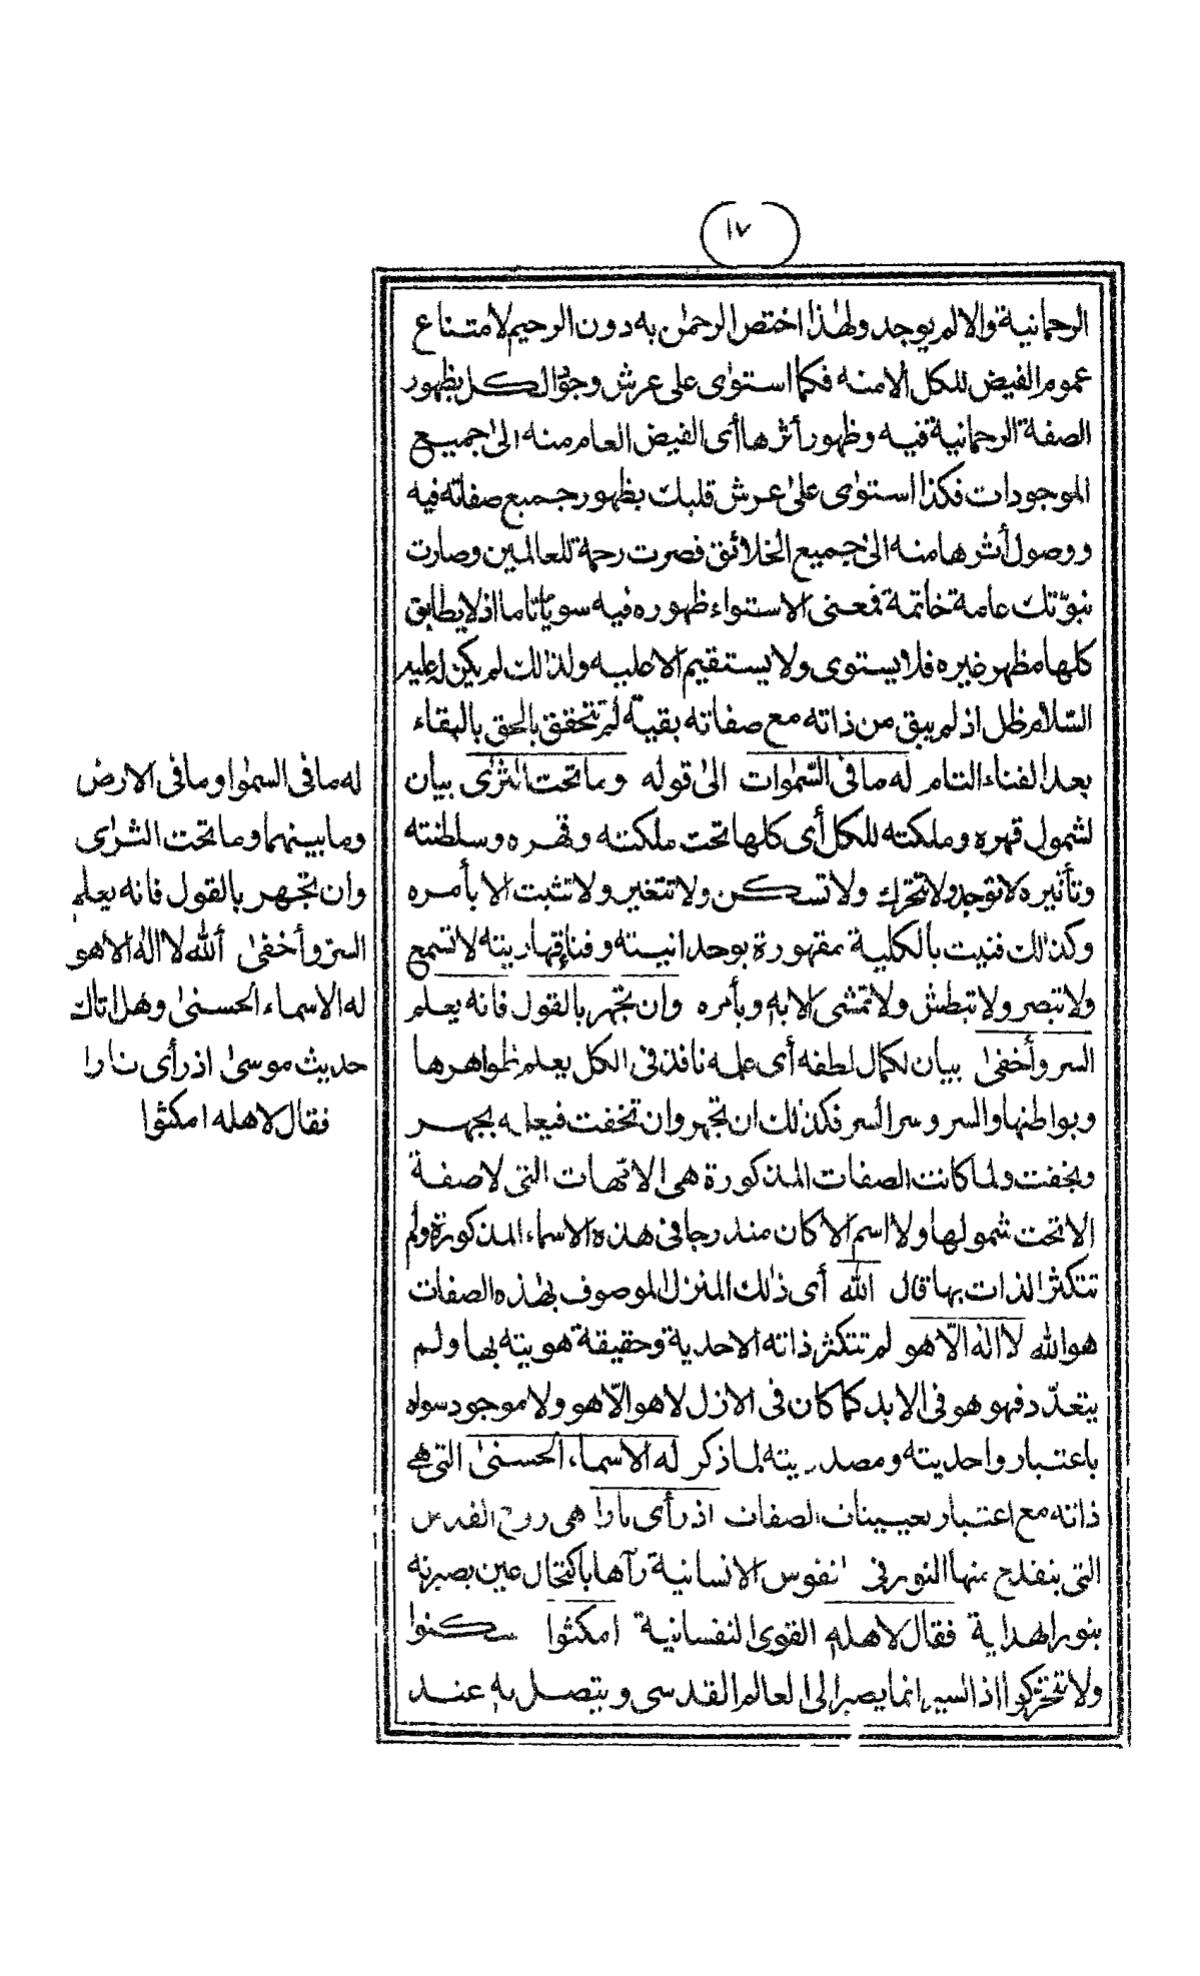 ١٧
الرحمانية والا لم يوجد ولهذا اختص الرحمٰن به دون الرحيم لامتناع
عموم الفيض للكل الا منه فكما استوٰى على عرش وجود الكل بظهور
الصفة الرحمانية فيه وظهور أثرها أى الفيض العام منه الىٰ جميع
الموجودات فكذا استوٰى علىٰ عرش قلبك بظهور جميع صفاته فيه
ووصول أثرها منه الىٰ جميع الخلائق فصرت رحمة للعالمين وصارت
نبوّتك عامة خاتمة فمعنى الاستواء ظهوره فيه سويّا تاما اذ لا يطابق
كلها مظهر غيره فلا يستوى ولا يستقيم الا عليه ولذٰلك لم يكن له عليه
السّلام ظل اذ لم يبق من ذاته مع صفاته بقية لم تتحقق بالحق بالبقاء
بعد الفناء التام له ما فى السّمٰوات الىٰ قوله وما تحت الثرٰى بيان
لشمول قهره وملكته للكل أى كلها تحت ملكته وقهره وسلطنته
وتأثيره لا توجد ولا تتحرك ولا تسكن ولا تتغير ولا تثبت الا بأمره
وكذٰلك فنيت بالكلية مقهورة بوحدانيته وفنا قهاريته لا تسمع
ولا تبصر ولا تبطش ولا تمشى الا به وبأمره وان تجهر بالقول فانه يعلم
السر وأخفىٰ بيان لكمال لطفه أى علمه نافذ فى الكل يعلم ظواهرها
وبواطنها والسر وسر السر فكذلك ان تجهر وان تخفت فيعلمه بجهر
وبخفت ولما كانت الصفات المذكورة هى الامّهات التى لا صفة
الا تحت شمولها ولا اسم الا كان مندرجا فى هذه الاسماء المذكورة ولم
تتكثر الذات بها قال الله أى ذٰلك المنزل الموصوف بهٰذه الصفات
هو الله لا الٰه الّا هو لم تتكثر ذاته الاحدية وحقيقة هويته بها ولم
يتعدّد فهو هو فى الابد كما كان فى الازل لا هو الّا هو ولا موجود سواه
باعتبار واحديته ومصدريته لما ذكر له الاسماء الحسنىٰ التى هى
ذاته مع اعتبار تعيينات الصفات اذ رأى نارا هى روح القدس
التى ينقدح منها النور فى النفوس الانسانية رآها باكتحال عين بصيرته
بنور الهداية فقال لاهله القوى النفسانية امكثوا سكنوا
ولا تتحركوا اذ السير انما يصير الى العالم القدسى ويتصل به عند
له ما فى السمٰوات وما فى الارض
وما بينهما وما تحت الثرٰى
وان تجهر بالقول فانه يعلم
السرّ وأخفىٰ ألله لا الٰه الا هو
له الاسماء الحسنىٰ وهل اتاك
حديث موسىٰ اذ رأى نارا
فقال لاهله امكثوا